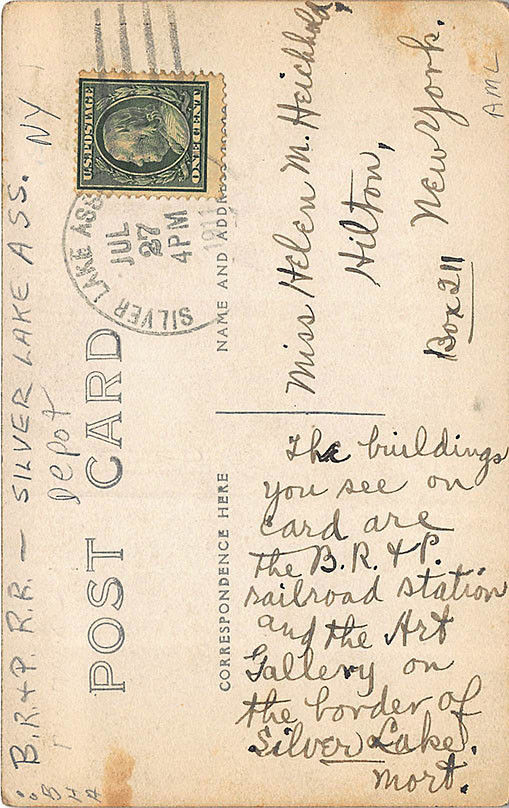 B.R.+P. R.R. — SILVER LAKE ASS. NY
Depot
POST CARD
U.S. POSTAGE
ONE CENT
SILVER LAKE ASS
JUL
27
4PM
1911
CORRESPONDENCE HERE
NAME AND ADDRESS
The buildings
you see on
card are
the B.R. & P.
railroad station
and the Art
Gallery on
the border of
Silver Lake.
Mort.
Miss Helen M. Heichhold,
Hilton,
New York.
Box 211
AML